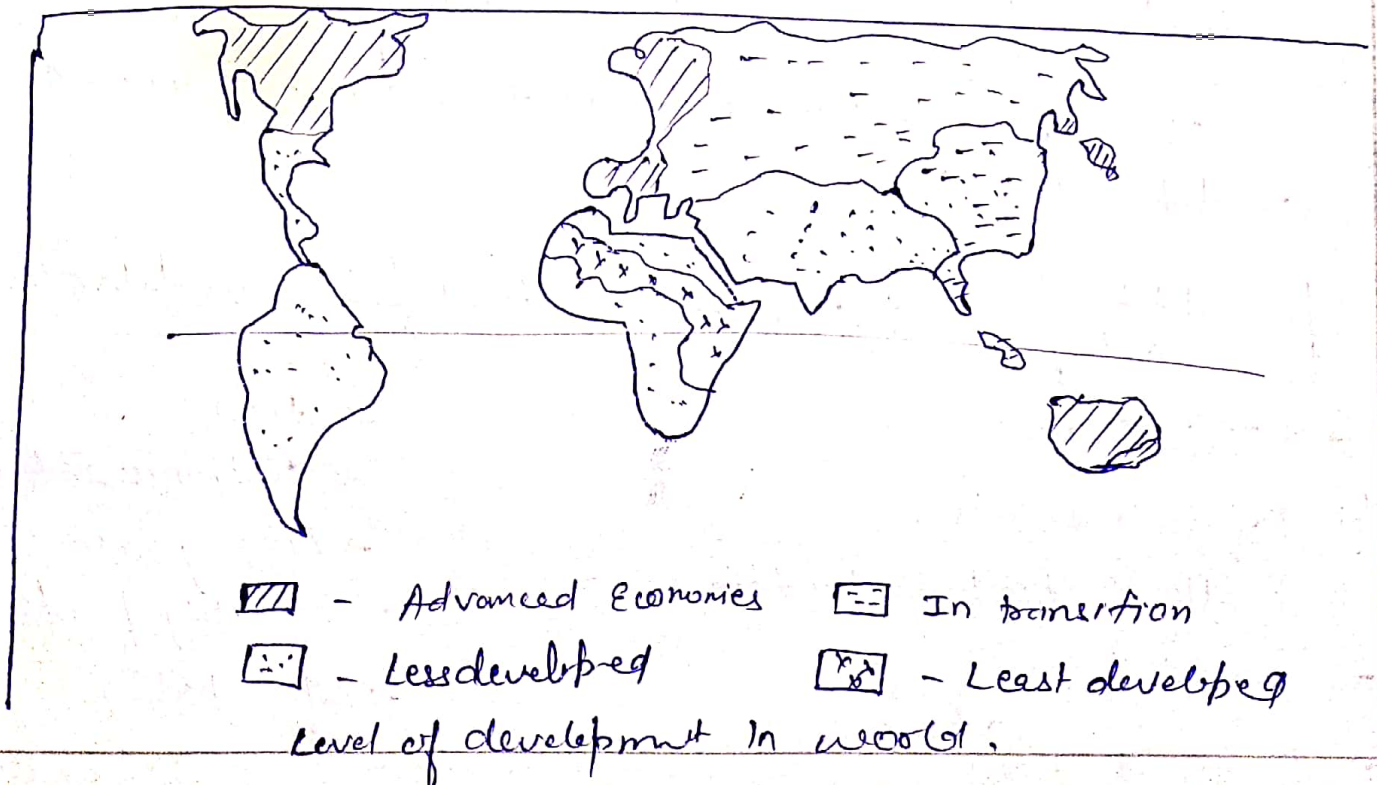 - Advanced Economies
In transition
- Less developed
- Least developed
Level of development in world.